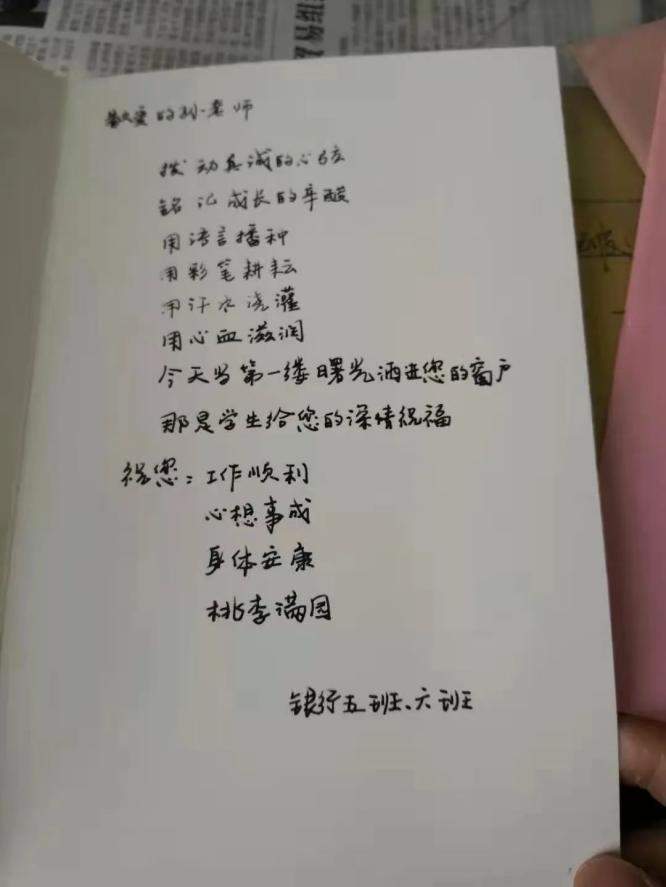 敬爱的孙老师
拨动真诚的心弦
铭记成长的辛酸
用语言播种
用彩笔耕耘
用汗水浇灌
用心血滋润
今天当第一缕曙光洒进您的窗户
那是学生给您的深情祝福
祝您：工作顺利
心想事成
身体安康
桃李满园
银行五班、六班